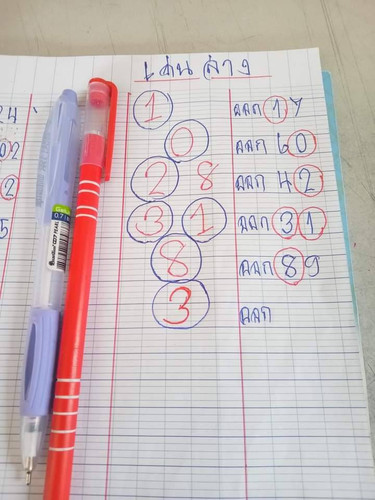 เด่น ล่าง
24
1 ออก 17
02 0 ออก 60
2 2 8 ออก 42
5 3 1 ออก 31
8 ออก 89
3 ออก